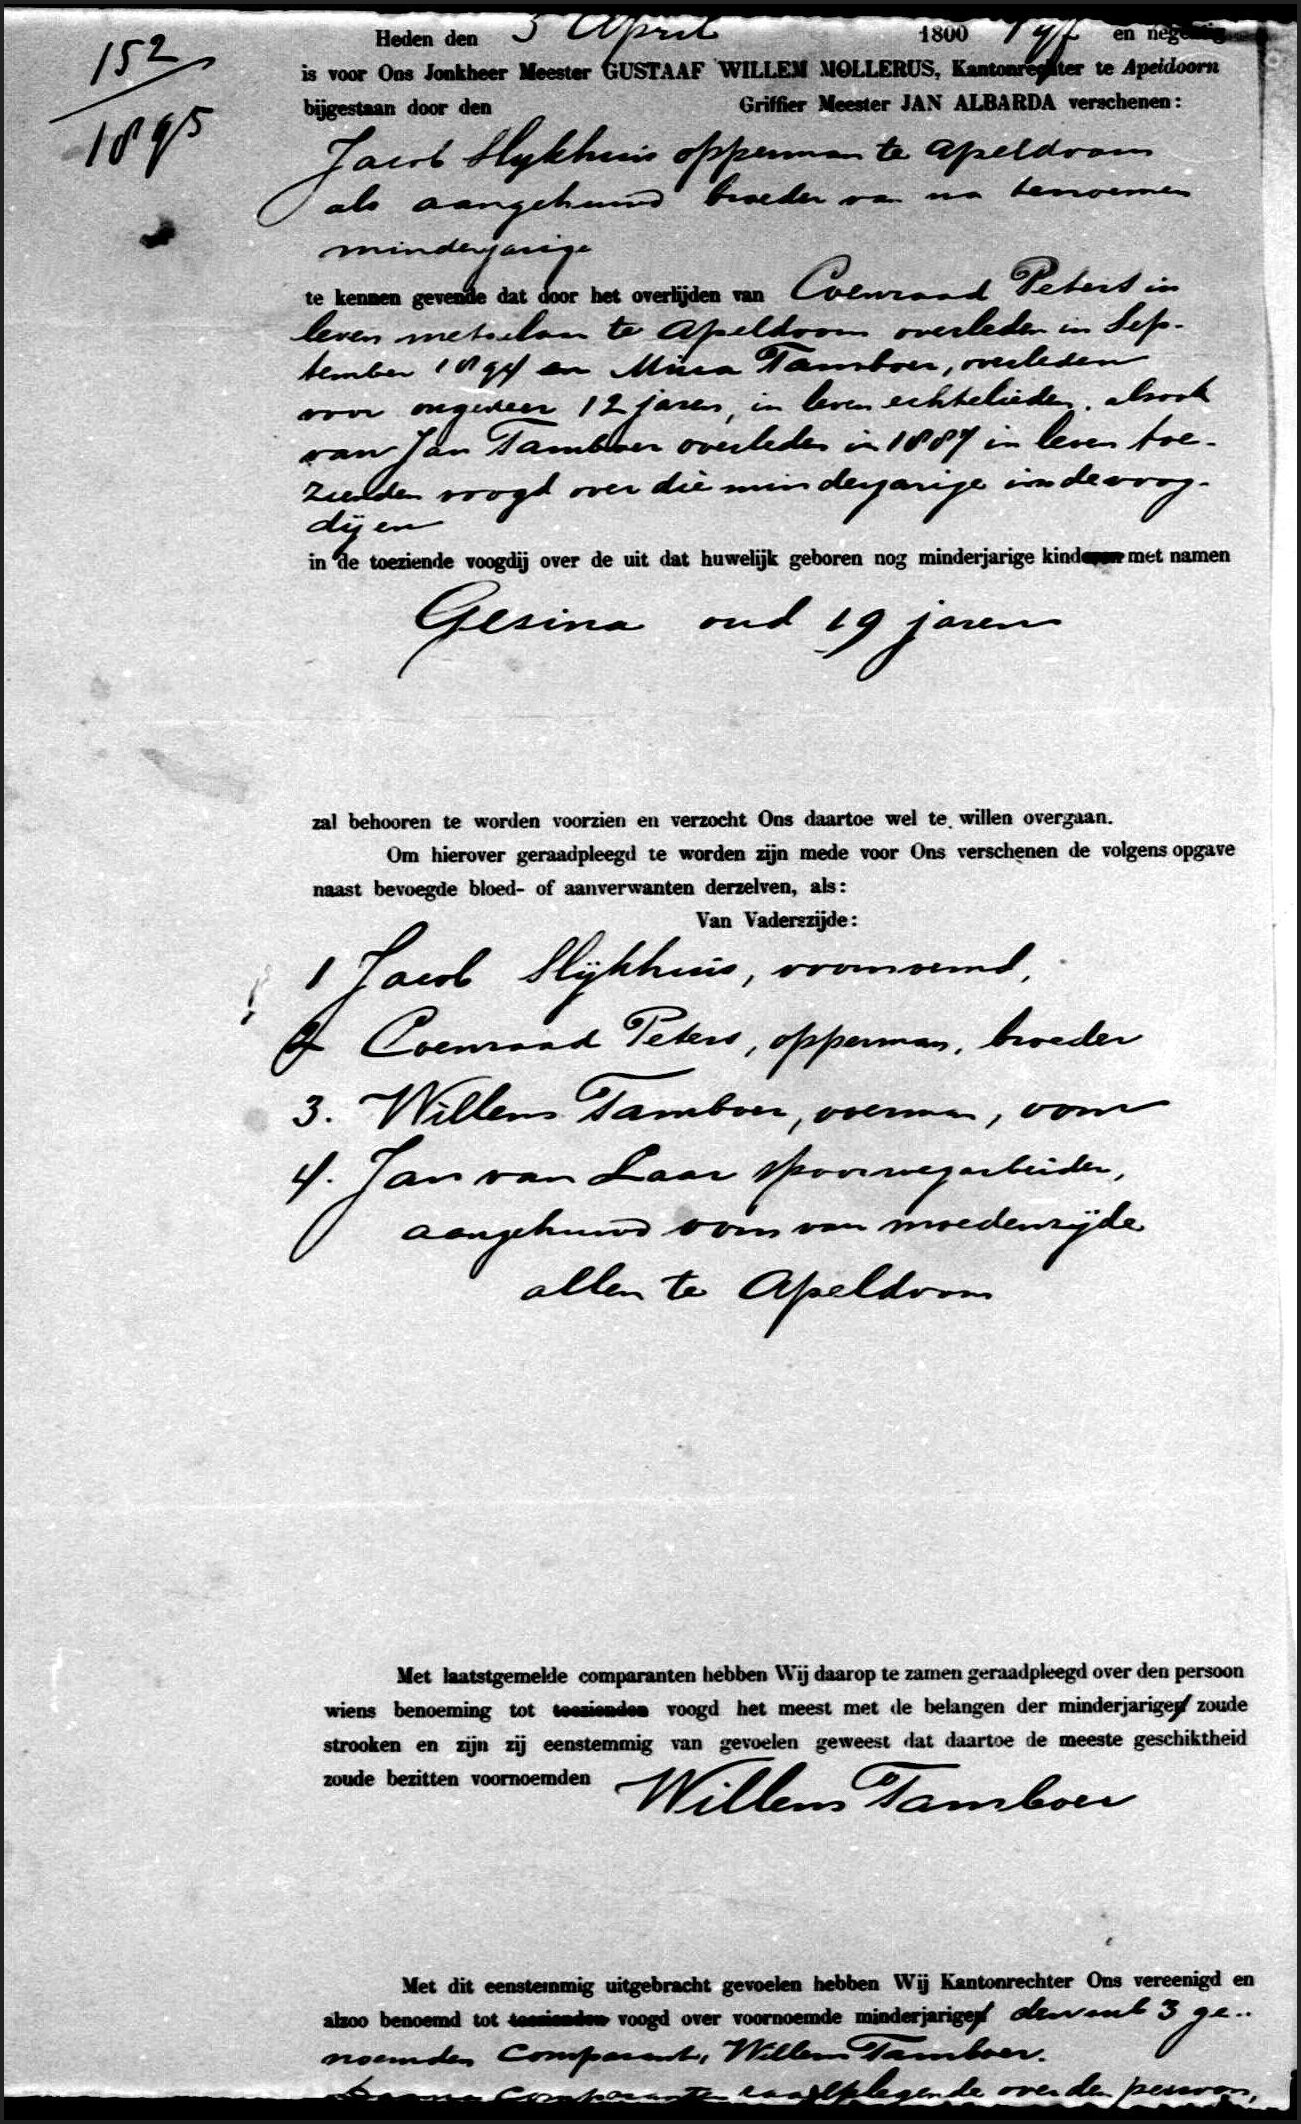 152
1895
Heden den 3 April 1800 vyf en negentig
is voor Ons Jonkheer Meester GUSTAAF WILLEM MOLLERUS, Kantonrechter te Apeldoorn
bijgestaan door den Griffier Meester JAN ALBARDA verschenen:
Jacob Slykhuis opperman te Apeldoorn
als aangehuwd broeder van na tenoemen
minderjarige
te kennen gevende dat door het overlijden van Coenraad Peters in
leven metselaar te Apeldoorn overleden in Sep-
tember 1894 en Mina Tamboer, overleden
voor ongeveer 12 jaren, in leven echtelieden, alsook
van Jan Tamboer overleden in 1887 in leven toe-
zienden voogd over die minderjarige in de voog-
dij en
in de toeziende voogdij over de uit dat huwelijk geboren nog minderjarige kinderen met namen
Gesina oud 19 jaren
zal behooren te worden voorzien en verzocht Ons daartoe wel te willen overgaan.
Om hierover geraadpleegd te worden zijn mede voor Ons verschenen de volgens opgave
naast bevoegde bloed- of aanverwanten derzelven, als:
Van Vaderszijde:
1 Jacob Slijkhuis, voornoemd,
2 Coenraad Peters, opperman, broeder
3. Willem Tamboer, voerman, oom
4. Jan van Laar spoorwegarbeider,
aangehuwd oom van moederszijde
allen te Apeldoorn
Met laatstgemelde comparanten hebben Wij daarop te zamen geraadpleegd over den persoon
wiens benoeming tot toezienden voogd het meest met de belangen der minderjarigen zoude
strooken en zijn zij eenstemmig van gevoelen geweest dat daartoe de meeste geschiktheid
zoude bezitten voornoemden Willem Tamboer
Met dit eenstemmig uitgebracht gevoelen hebben Wij Kantonrechter Ons vereenigd en
alzoo benoemd tot toezienden voogd over voornoemde minderjarigen den sub 3 ge-
noemden comparant, Willem Tamboer.
comparanten raadplegende over den persoon,